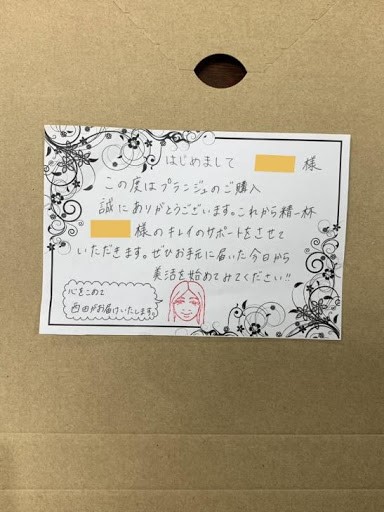 はじめまして 様
この度はプランジェのご購入
誠にありがとうございます。これから精一杯
様のキレイのサポートをさせて
いただきます。ぜひお手元に届いた今日から
美活を始めてみてください!!
心をこめて
西田がお届けいたします。